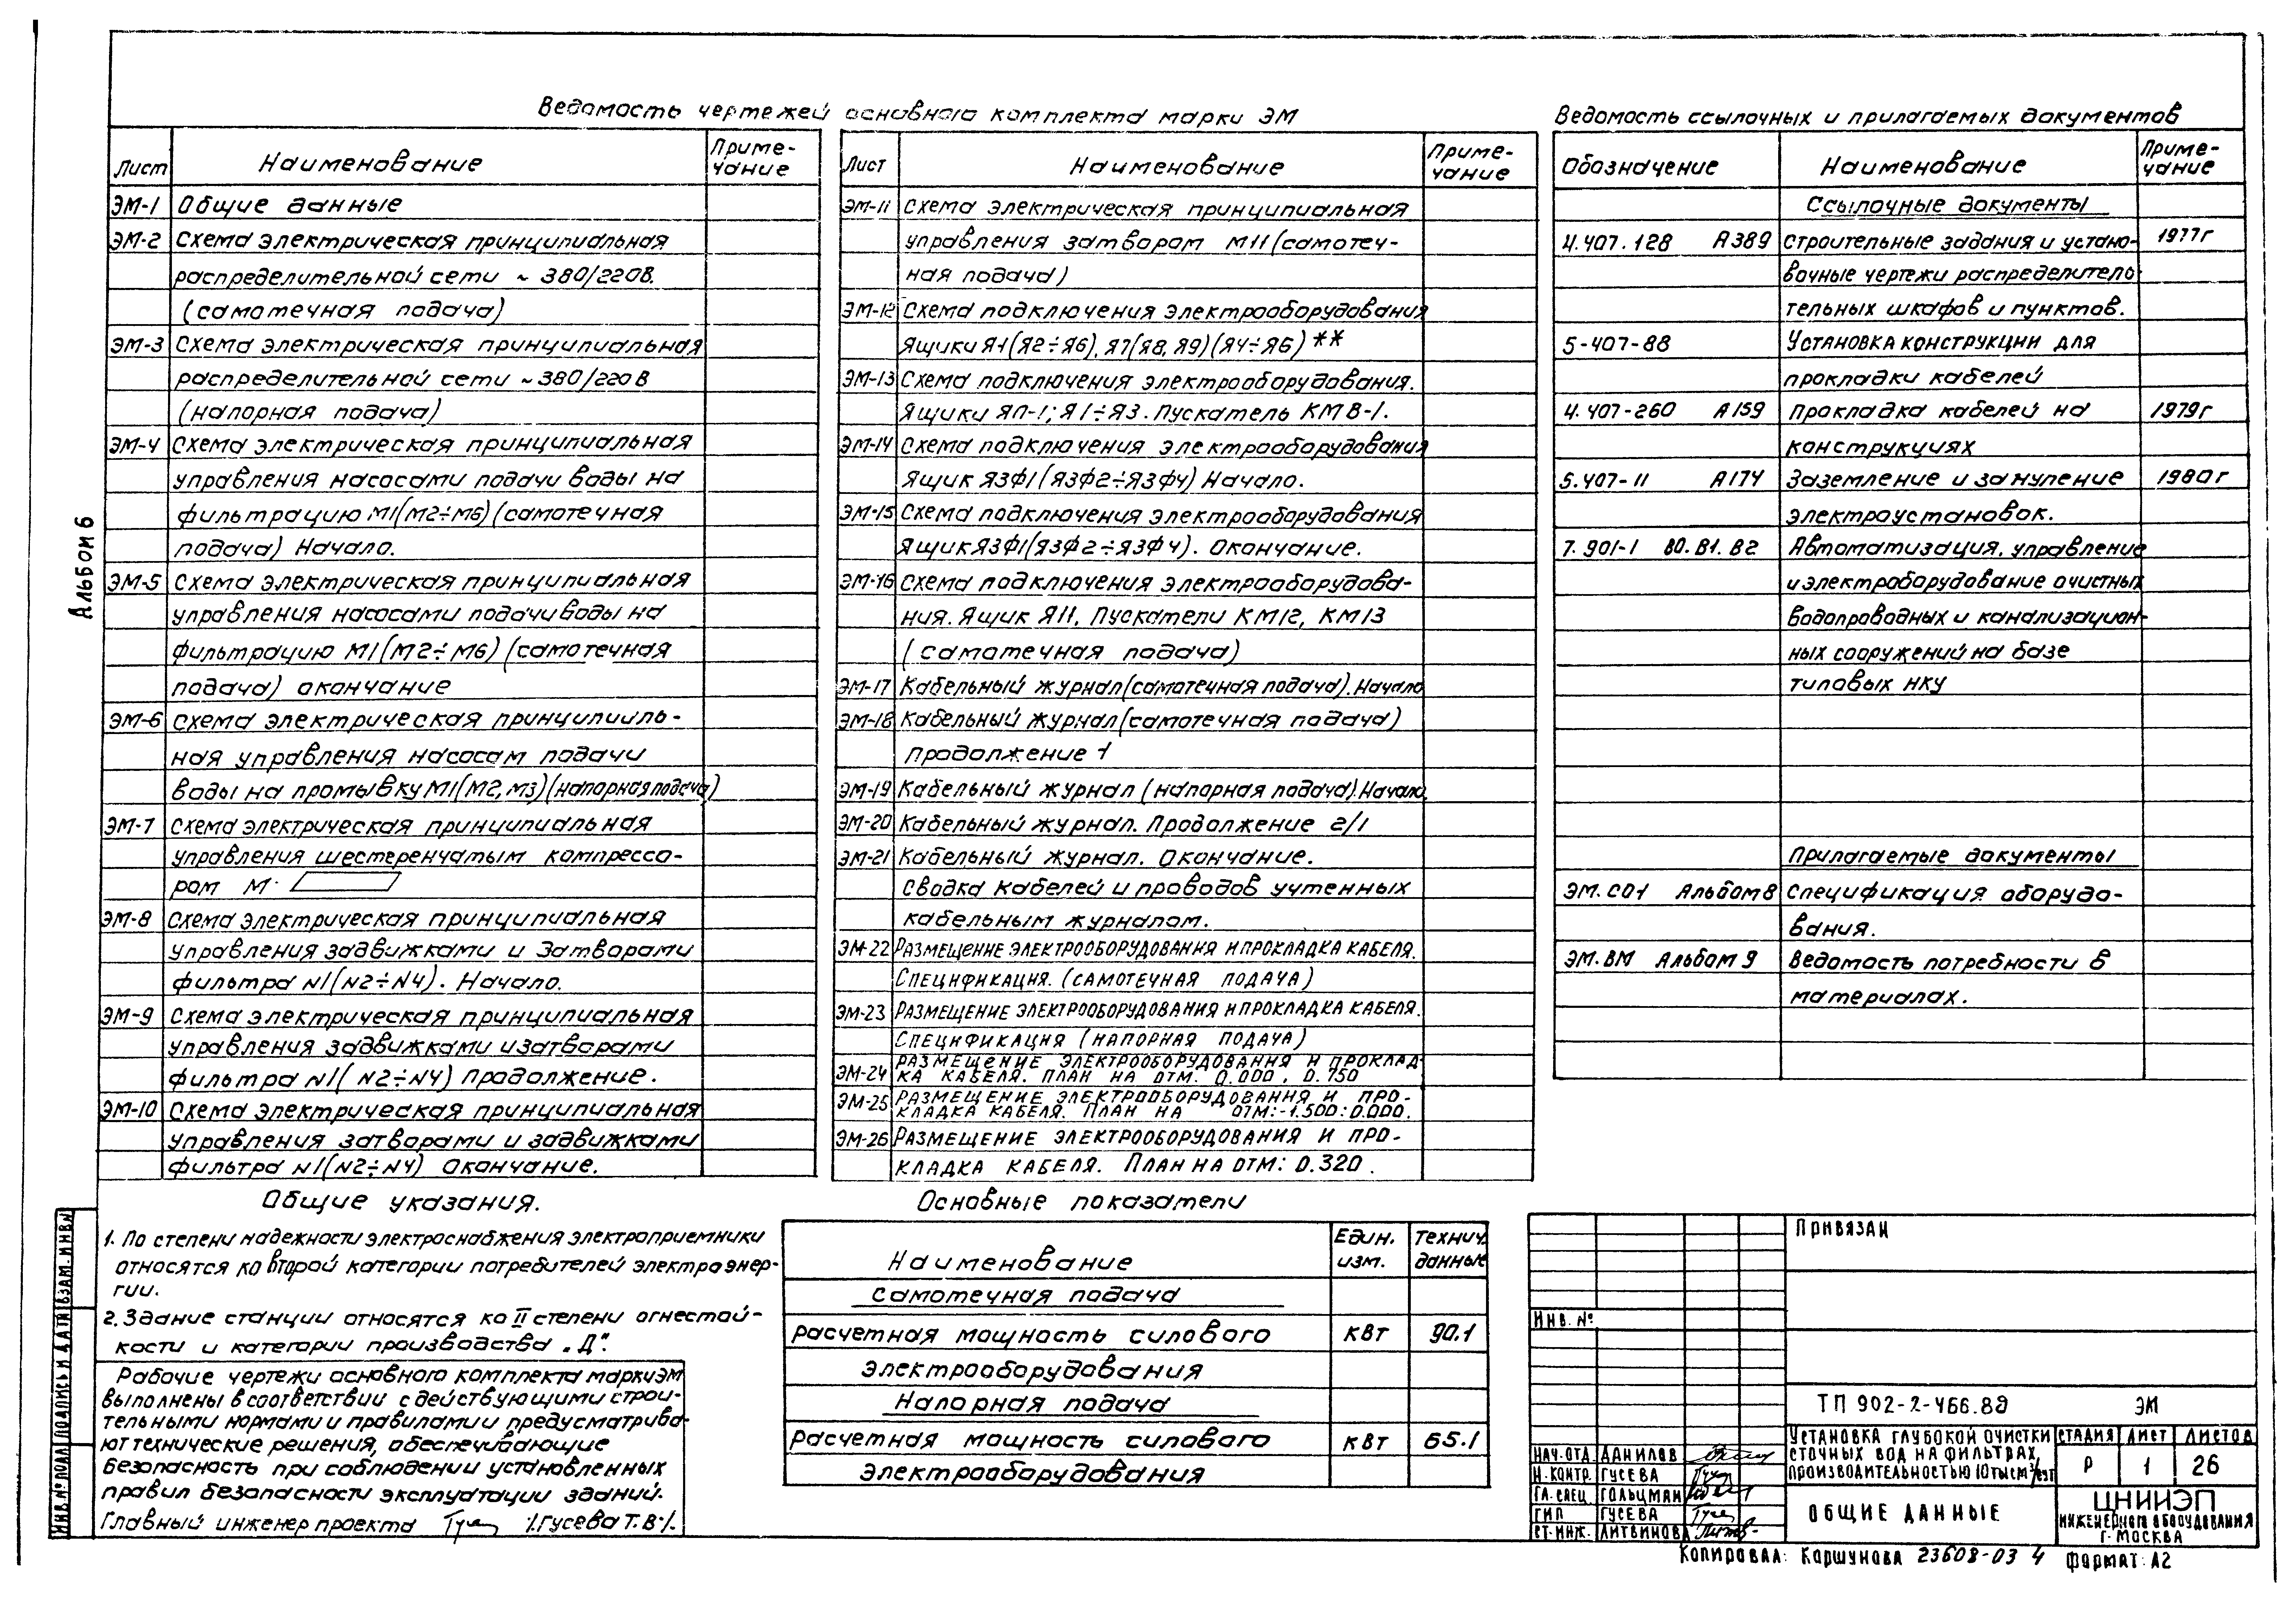 Ведомость чертежей основного комплекта марки ЭМ
Лист Наименование Приме-
чание
ЭМ-1 Общие данные
ЭМ-2 Схема электрическая принципиальная
распределительной сети ~ 380/220В.
(самотечная подача)
ЭМ-3 Схема электрическая принципиальная
распределительной сети ~380/220В
(напорная подача)
ЭМ-4 Схема электрическая принципиальная
управления насосами подачи воды на
фильтрацию М1(М2÷М6) (самотечная
подача) Начало.
ЭМ-5 Схема электрическая принципиальная
управления насосами подачи воды на
фильтрацию М1(М2÷М6) (самотечная
подача) окончание
ЭМ-6 Схема электрическая принципиаль-
ная управления насосам подачи
воды на промывку М1(М2,М3)(напорная подача)
ЭМ-7 Схема электрическая принципиальная
управления шестеренчатым компрессо-
ром М
ЭМ-8 Схема электрическая принципиальная
управления задвижками и затворами
фильтра N1(N2÷N4). Начало.
ЭМ-9 Схема электрическая принципиальная
управления задвижками и затворами
фильтра N1(N2÷N4) Продолжение.
ЭМ-10 Схема электрическая принципиальная
управления затворами и задвижками
фильтра N1(N2÷N4) Окончание.
Лист Наименование Приме-
чание
ЭМ-11 Схема электрическая принципиальная
управления затвором М11(самотеч-
ная подача)
ЭМ-12 Схема подключения электрооборудования
Ящики Я1(Я2÷Я6), Я7(Я8, Я9)(Я4÷Я6) **
ЭМ-13 Схема подключения электрооборудования.
Ящики ЯП-1; Я1÷Я3. Пускатель КМ8-1.
ЭМ-14 Схема подключения электрооборудования
Ящик ЯЗФ1(ЯЗФ2÷ЯЗФ4) Начало.
ЭМ-15 Схема подключения электрооборудования
Ящик ЯЗФ1(ЯЗФ2÷ЯЗФ4). Окончание.
ЭМ-16 Схема подключения электрооборудова-
ния. Ящик Я11, Пускатели КМ12, КМ13
(самотечная подача)
ЭМ-17 Кабельный журнал(самотечная подача). Начало
ЭМ-18 Кабельный журнал(самотечная подача)
Продолжение 1
ЭМ-19 Кабельный журнал (напорная подача). Начало.
ЭМ-20 Кабельный журнал. Продолжение 2/1
ЭМ-21 Кабельный журнал. Окончание.
Сводка кабелей и проводов учтенных
кабельным журналом.
ЭМ-22 Размещение электрооборудования и прокладка кабеля.
Спецификация. (самотечная подача)
ЭМ-23 Размещение электрооборудования и прокладка кабеля.
Спецификация (напорная подача)
ЭМ-24 Размещение электрооборудования и проклад
ка кабеля. План на отм. 0.000, 0.750
ЭМ-25 Размещение электрооборудования и про-
кладка кабеля. План на отм:-1.500:0.000.
ЭМ-26 Размещение электрооборудования и про-
кладка кабеля. План на отм: 0.320.
Ведомость ссылочных и прилагаемых документов
Обозначение Наименование Приме-
чание
Ссылочные документы
4.407.128 А389 Строительные задания и устано- 1977г
вочные чертежи распределитель
тельных шкафов и пунктов.
5-407-88 Установка конструкции для
прокладки кабелей
4.407-260 А159 Прокладка кабелей на 1979г
конструкциях
5.407-11 А174 Заземление и зануление 1980г
электроустановок.
7.901-1 В0.В1.В2 Автоматизация, управление
и электроборудование очистных
водопроводных и канализацион-
ных сооружений на базе
типовых НКУ
Прилагаемые документы
ЭМ.СО1 Альбом 8 Спецификация оборудо-
вания.
ЭМ.ВМ Альбом 9 Ведомость потребности в
материалах.
Альбом 6
Общие указания.
1. По степени надежности электроснабжения электроприемники
относятся ко второй категории потребителей электроэнер-
гии.
2. Здание станции относятся ко II степени огнестой-
кости и категории производства „Д".
Рабочие чертежи основного комплекта марки ЭМ
выполнены в соответствии с действующими строи-
тельными нормами и правилами и предусматрива-
ют технические решения, обеспечивающие
безопасность при соблюдении установленных
правил безопасности эксплуатации зданий.
Главный инженер проекта /.Гусева Т.В./.
Основные показатели
Наименование Един. изм. Технич. данные
Самотечная подача
Расчетная мощность силового кВт 90.1
электрооборудования
Напорная подача
Расчетная мощность силового кВт 65.1
электрооборудования
Привязан
Инв. №
ТП 902-2-466.89 ЭМ
Нач.отд. Данилов
Н.контр. Гусева
Гл.спец. Гольцман
ГИП Гусева
Ст.инж. Литвинова
Установка глубокой очистки
сточных вод на фильтрах,
производительностью 10тыс м³/сут
Стадия Лист Листов
Р 1 26
Общие данные
ЦНИИЭП
инженерного оборудования
г. Москва
Копировал: Коршунова 23608-03 4 Формат: А2
Инв.№подл Подпись и дата Взам.инв№